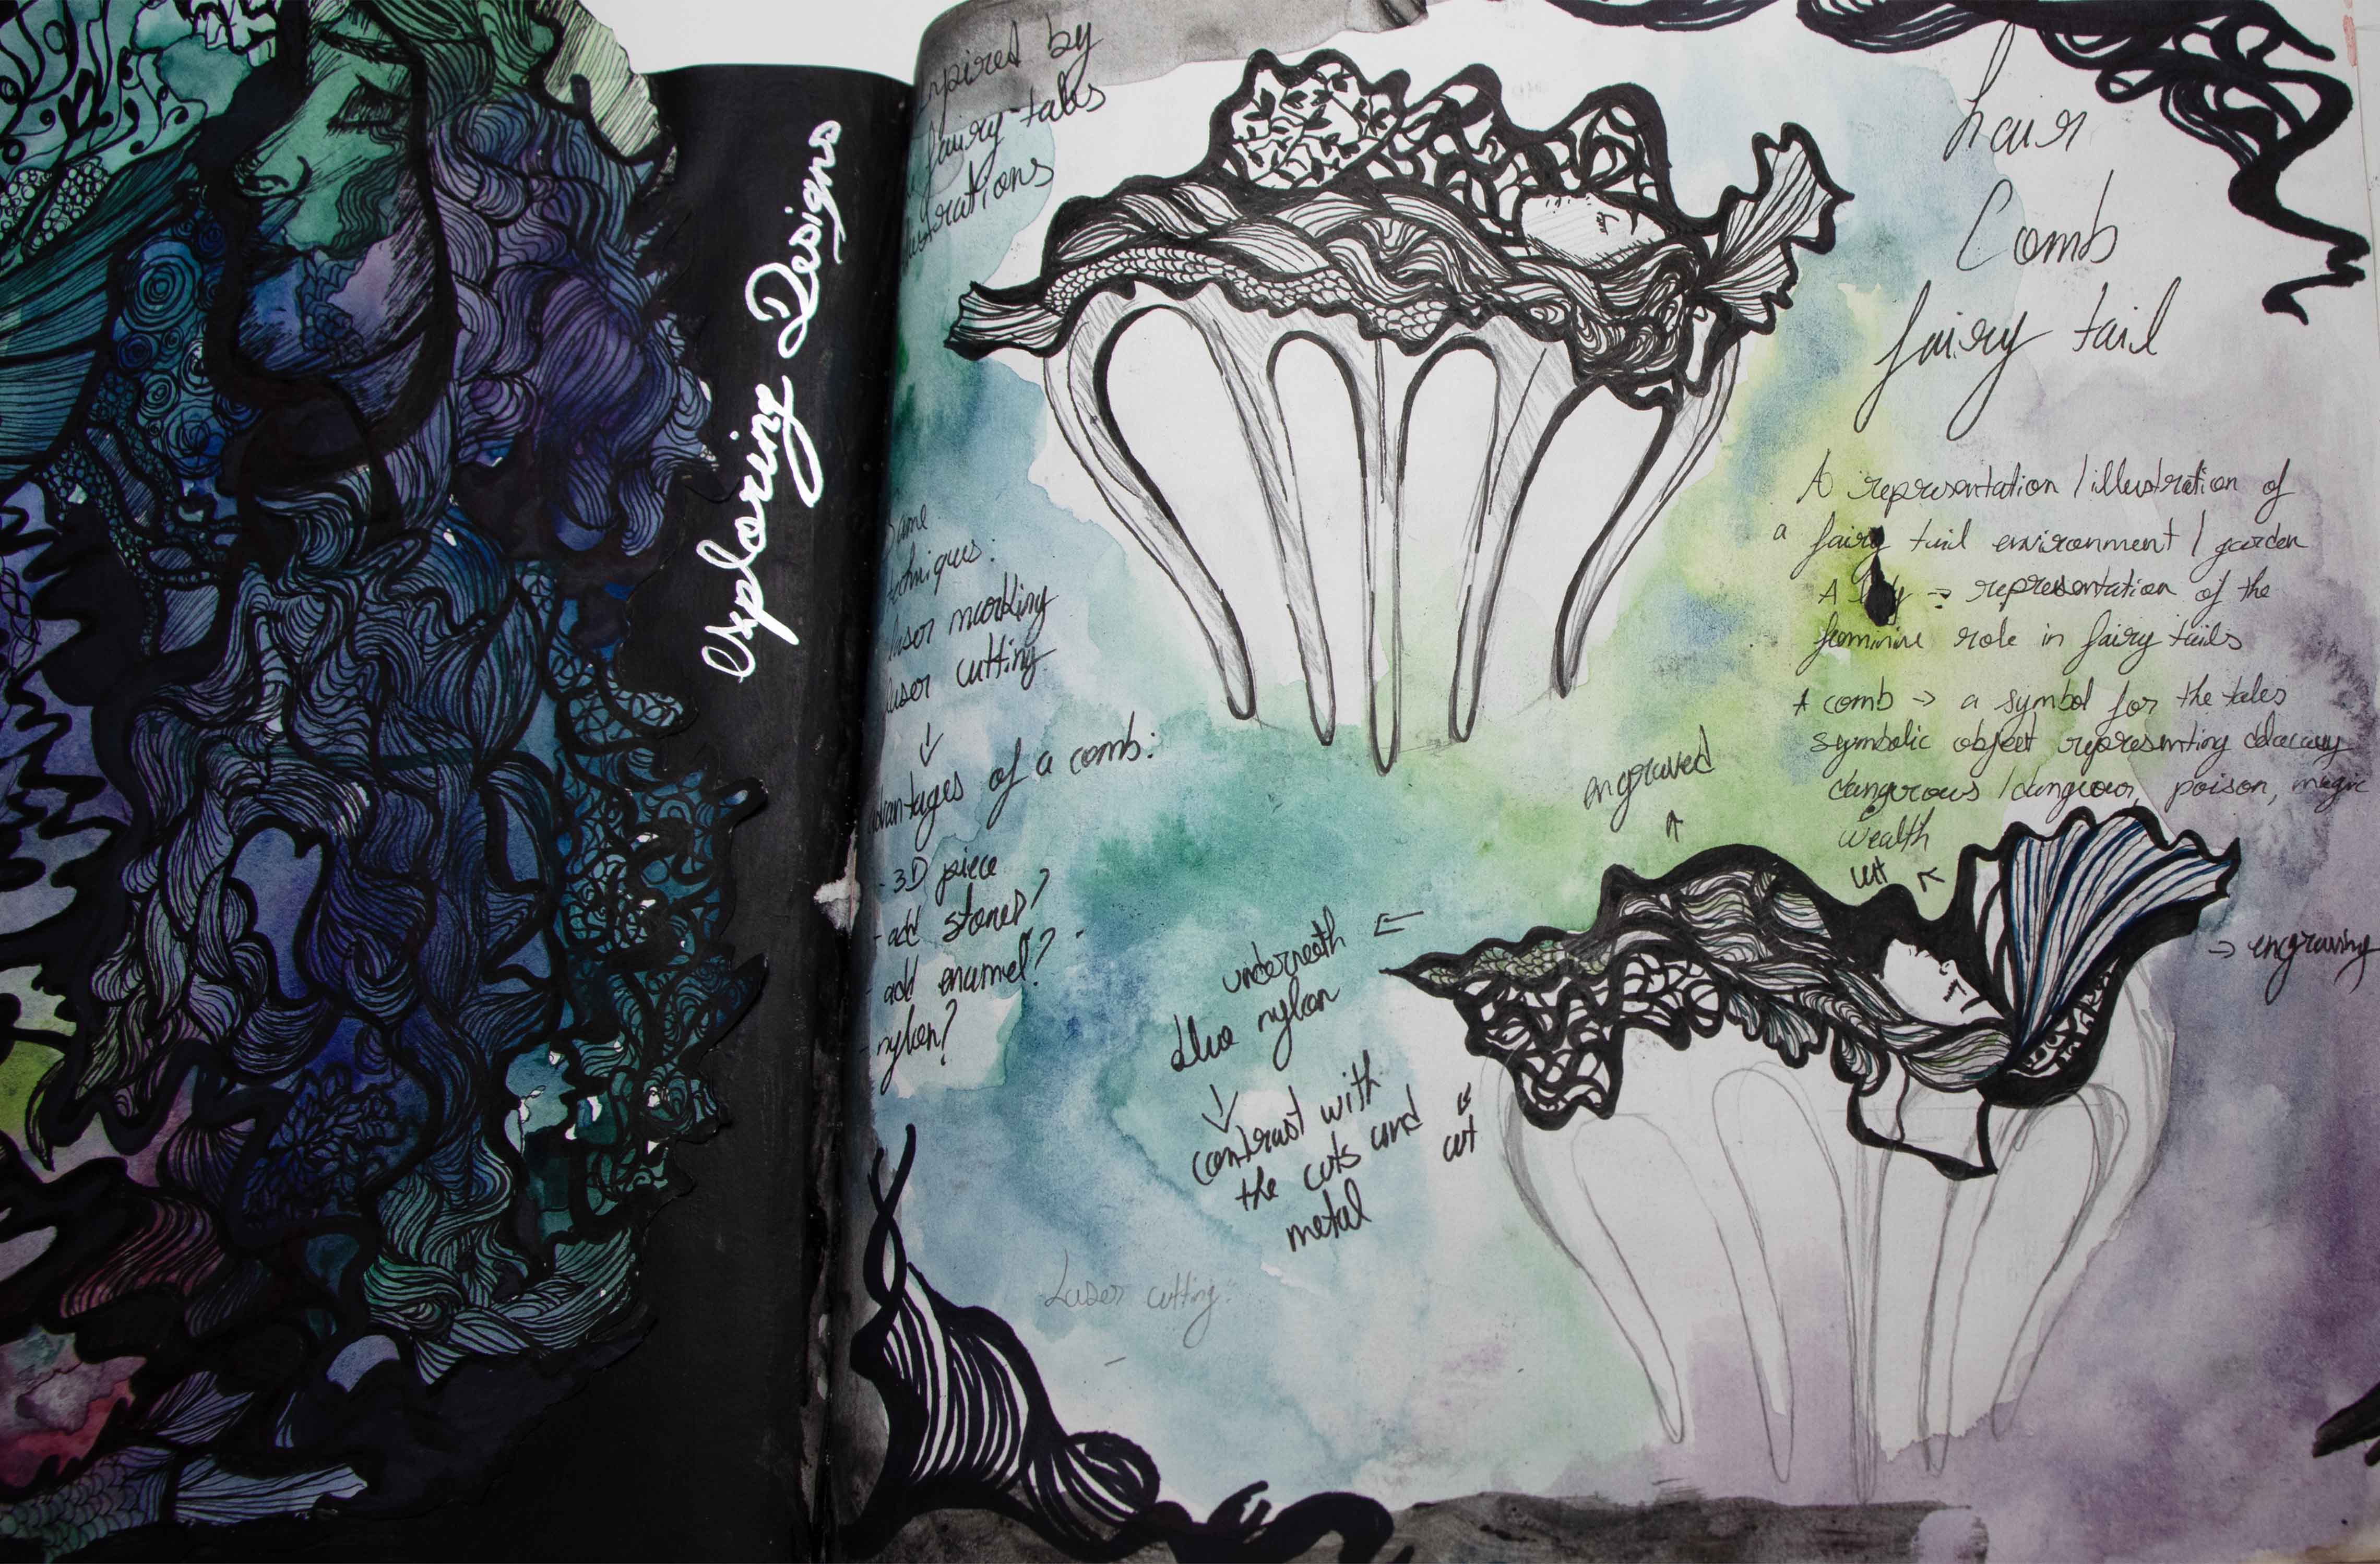 Exploring Designs
by
fairy-tales
hair
Comb
fairy tail
A representation / illustration of
a fairy tail environment / garden
A → representation of the
feminine role in fairy tails
A comb → a symbol for the tales
symbolic object representing
dangerous / poison, magic
wealth
laser marking
laser cutting
↓
of a comb:
- 3D piece
- add stones?
- add enamel?
- nylon?
engraved
↑
cut ↖
→ engraving
underneath ⇐
blue nylon
↓
contrast with
the cuts and
metal
cut
Laser cutting: